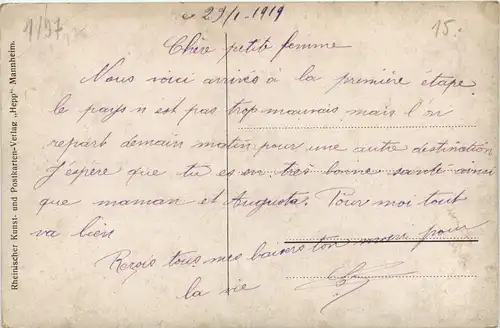 1/97
le 29/1 - 1919
15.-
Chère petite femme
Nous voici arrivés à la première étape
le pays n est pas trop mauvais mais l'on
repart demain matin pour une autre destination
J'espère que tu es en très bonne santé ainsi
que maman et Augusta. Pour moi tout
va bien
Reçois tous mes baisers ton pour
la vie
Rheinischer Kunst- und Postkarten-Verlag „Hepp" Mannheim.